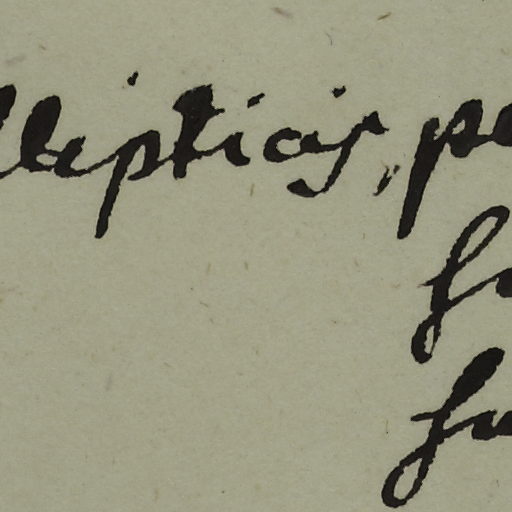 llipticis, pe
fu
fu